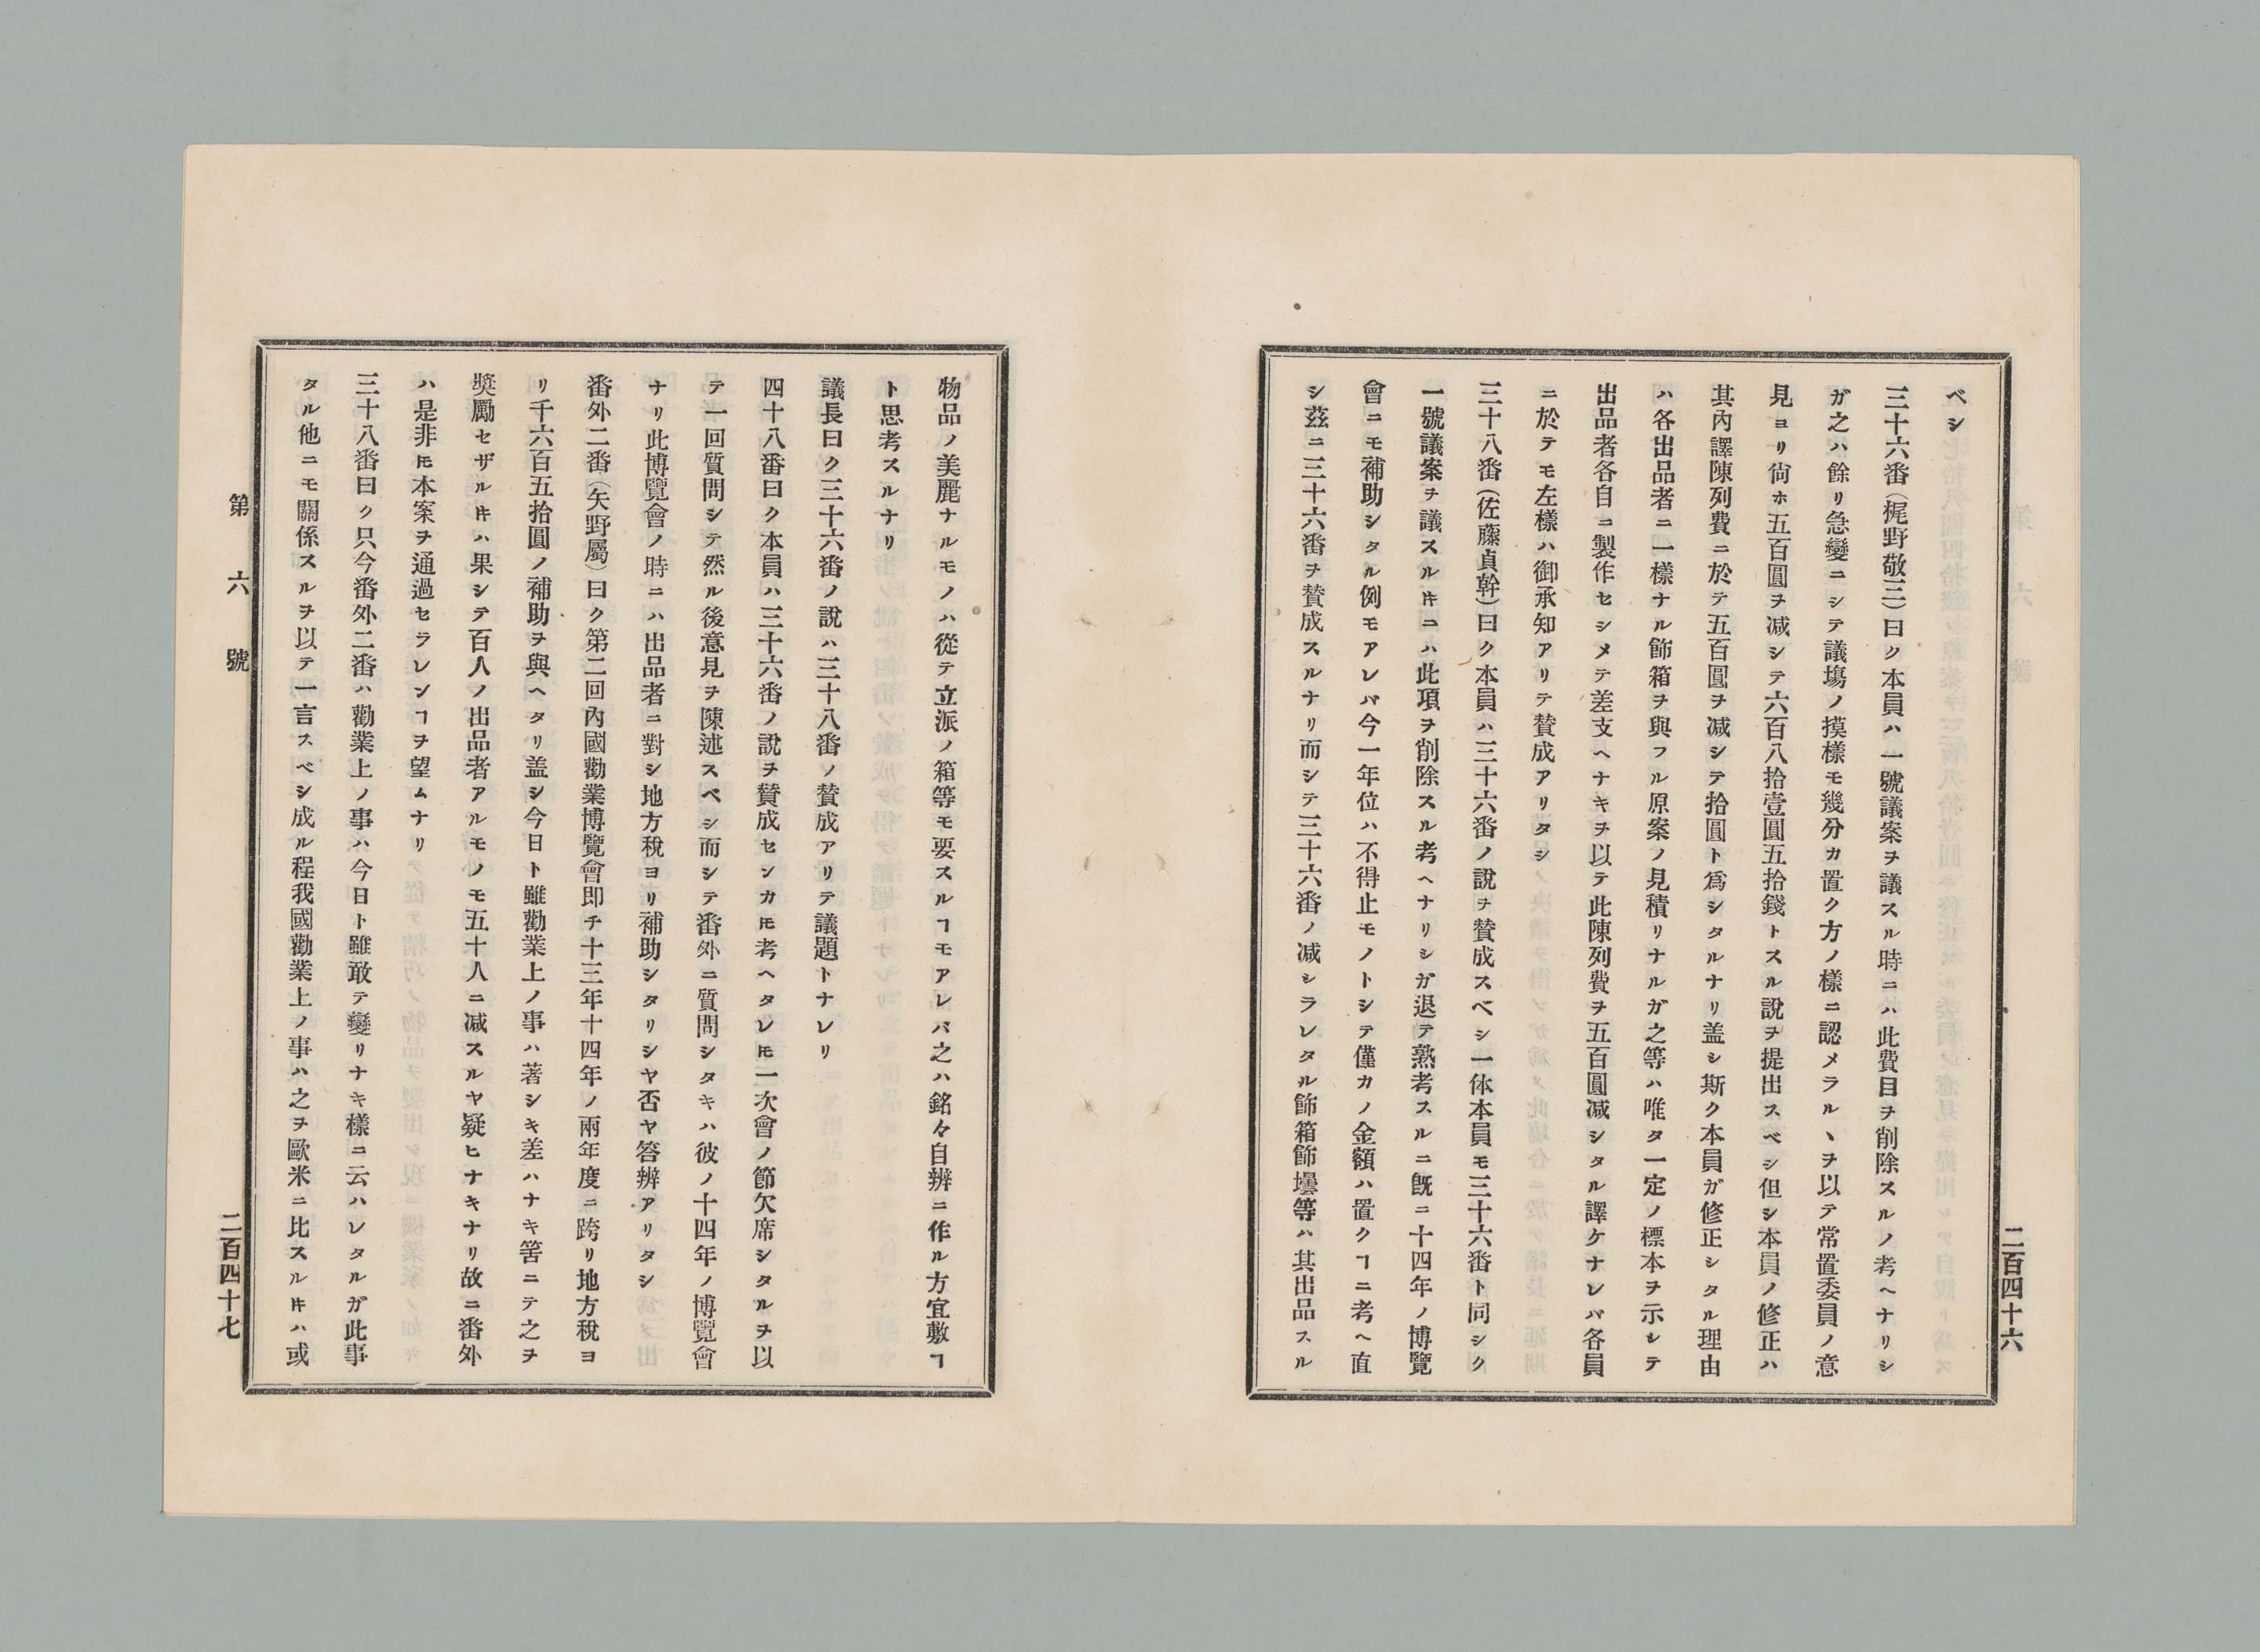 二百四十六
ベシ
三十六番（梶野敬三）曰ク本員ハ一號議案ヲ議スル時ニハ此費目ヲ削除スルノ考ヘナリシ
ガ之ハ餘リ急變ニシテ議塲ノ摸樣モ幾分カ置ク方ノ樣ニ認メラルヽヲ以テ常置委員ノ意
見ヨリ尙ホ五百圓ヲ减シテ六百八拾壹圓五拾錢トスル說ヲ提出スベシ但シ本員ノ修正ハ
其內譯陳列費ニ於テ五百圓ヲ减シテ拾圓ト爲シタルナリ盖シ斯ク本員ガ修正シタル理由
ハ各出品者ニ一樣ナル飾箱ヲ與フル原案ノ見積リナルガ之等ハ唯タ一定ノ標本ヲ示シテ
出品者各自ニ製作セシメテ差支ヘナキヲ以テ此陳列費ヲ五百圓减シタル譯ケナレバ各員
ニ於テモ左樣ハ御承知アリテ賛成アリタシ
三十八番（佐藤貞幹）曰ク本員ハ三十六番ノ說ヲ賛成スベシ一体本員モ三十六番ト同シク
一號議案ヲ議スルヰニハ此項ヲ削除スル考ヘナリシガ退テ熟考スルニ旣ニ十四年ノ博覽
會ニモ補助シタル例モアレバ今一年位ハ不得止モノトシテ僅カノ金額ハ置クヿニ考ヘ直
シ茲ニ三十六番ヲ賛成スルナリ而シテ三十六番ノ减シラレタル飾箱飾壜等ハ其出品スル
物品ノ美麗ナルモノハ從テ立派ノ箱等モ要スルヿモアレバ之ハ銘々自辨ニ作ル方宜敷ヿ
ト思考スルナリ
議長曰ク三十六番ノ說ハ三十八番ノ賛成アリテ議題トナレリ
四十八番曰ク本員ハ三十六番ノ說ヲ賛成センカモ考ヘタレ𪜈一次會ノ節欠席シタルヲ以
テ一回質問シテ然ル後意見ヲ陳述スベシ而シテ番外ニ質問シタキハ彼ノ十四年ノ博覽會
ナリ此博覽會ノ時ニハ出品者ニ對シ地方稅ヨリ補助シタリシヤ否ヤ答辨アリタシ
番外二番（矢野屬）曰ク第二回內國勸業博覽會即チ十三年十四年ノ兩年度ニ跨リ地方稅ヨ
リ千六百五拾圓ノ補助ヲ與ヘタリ盖シ今日ト雖勸業上ノ事ハ著シキ差ハナキ筈ニテ之ヲ
奬勵セザルヰハ果シテ百人ノ出品者アルモノモ五十人ニ减スルヤ疑ヒナキナリ故ニ番外
ハ是非𪜈本案ヲ通過セラレンヿヲ望ムナリ
三十八番曰ク只今番外二番ハ勸業上ノ事ハ今日ト雖敢テ變リナキ樣ニ云ハレタルガ此事
タル他ニモ關係スルヲ以テ一言スベシ成ル程我國勸業上ノ事ハ之ヲ歐米ニ比スルヰハ或
第六號
二百四十七